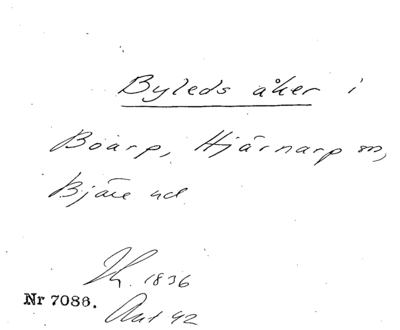 Byleds åker i
Boarp, Hjärnarp sn,
Bjäre hd
1836
Nr 7086.
Ant 42